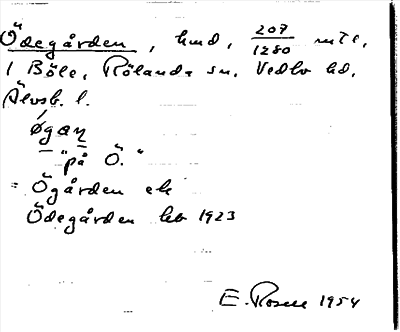 Ödegården, hmd, 207/1280 mtl,
1 Böle, Rölanda sn. Vedbo hd,
Älvsb. l.
øgaɳ
"på Ö."
= Ögården ek
Ödegården kb 1923
E. Rosell 1954